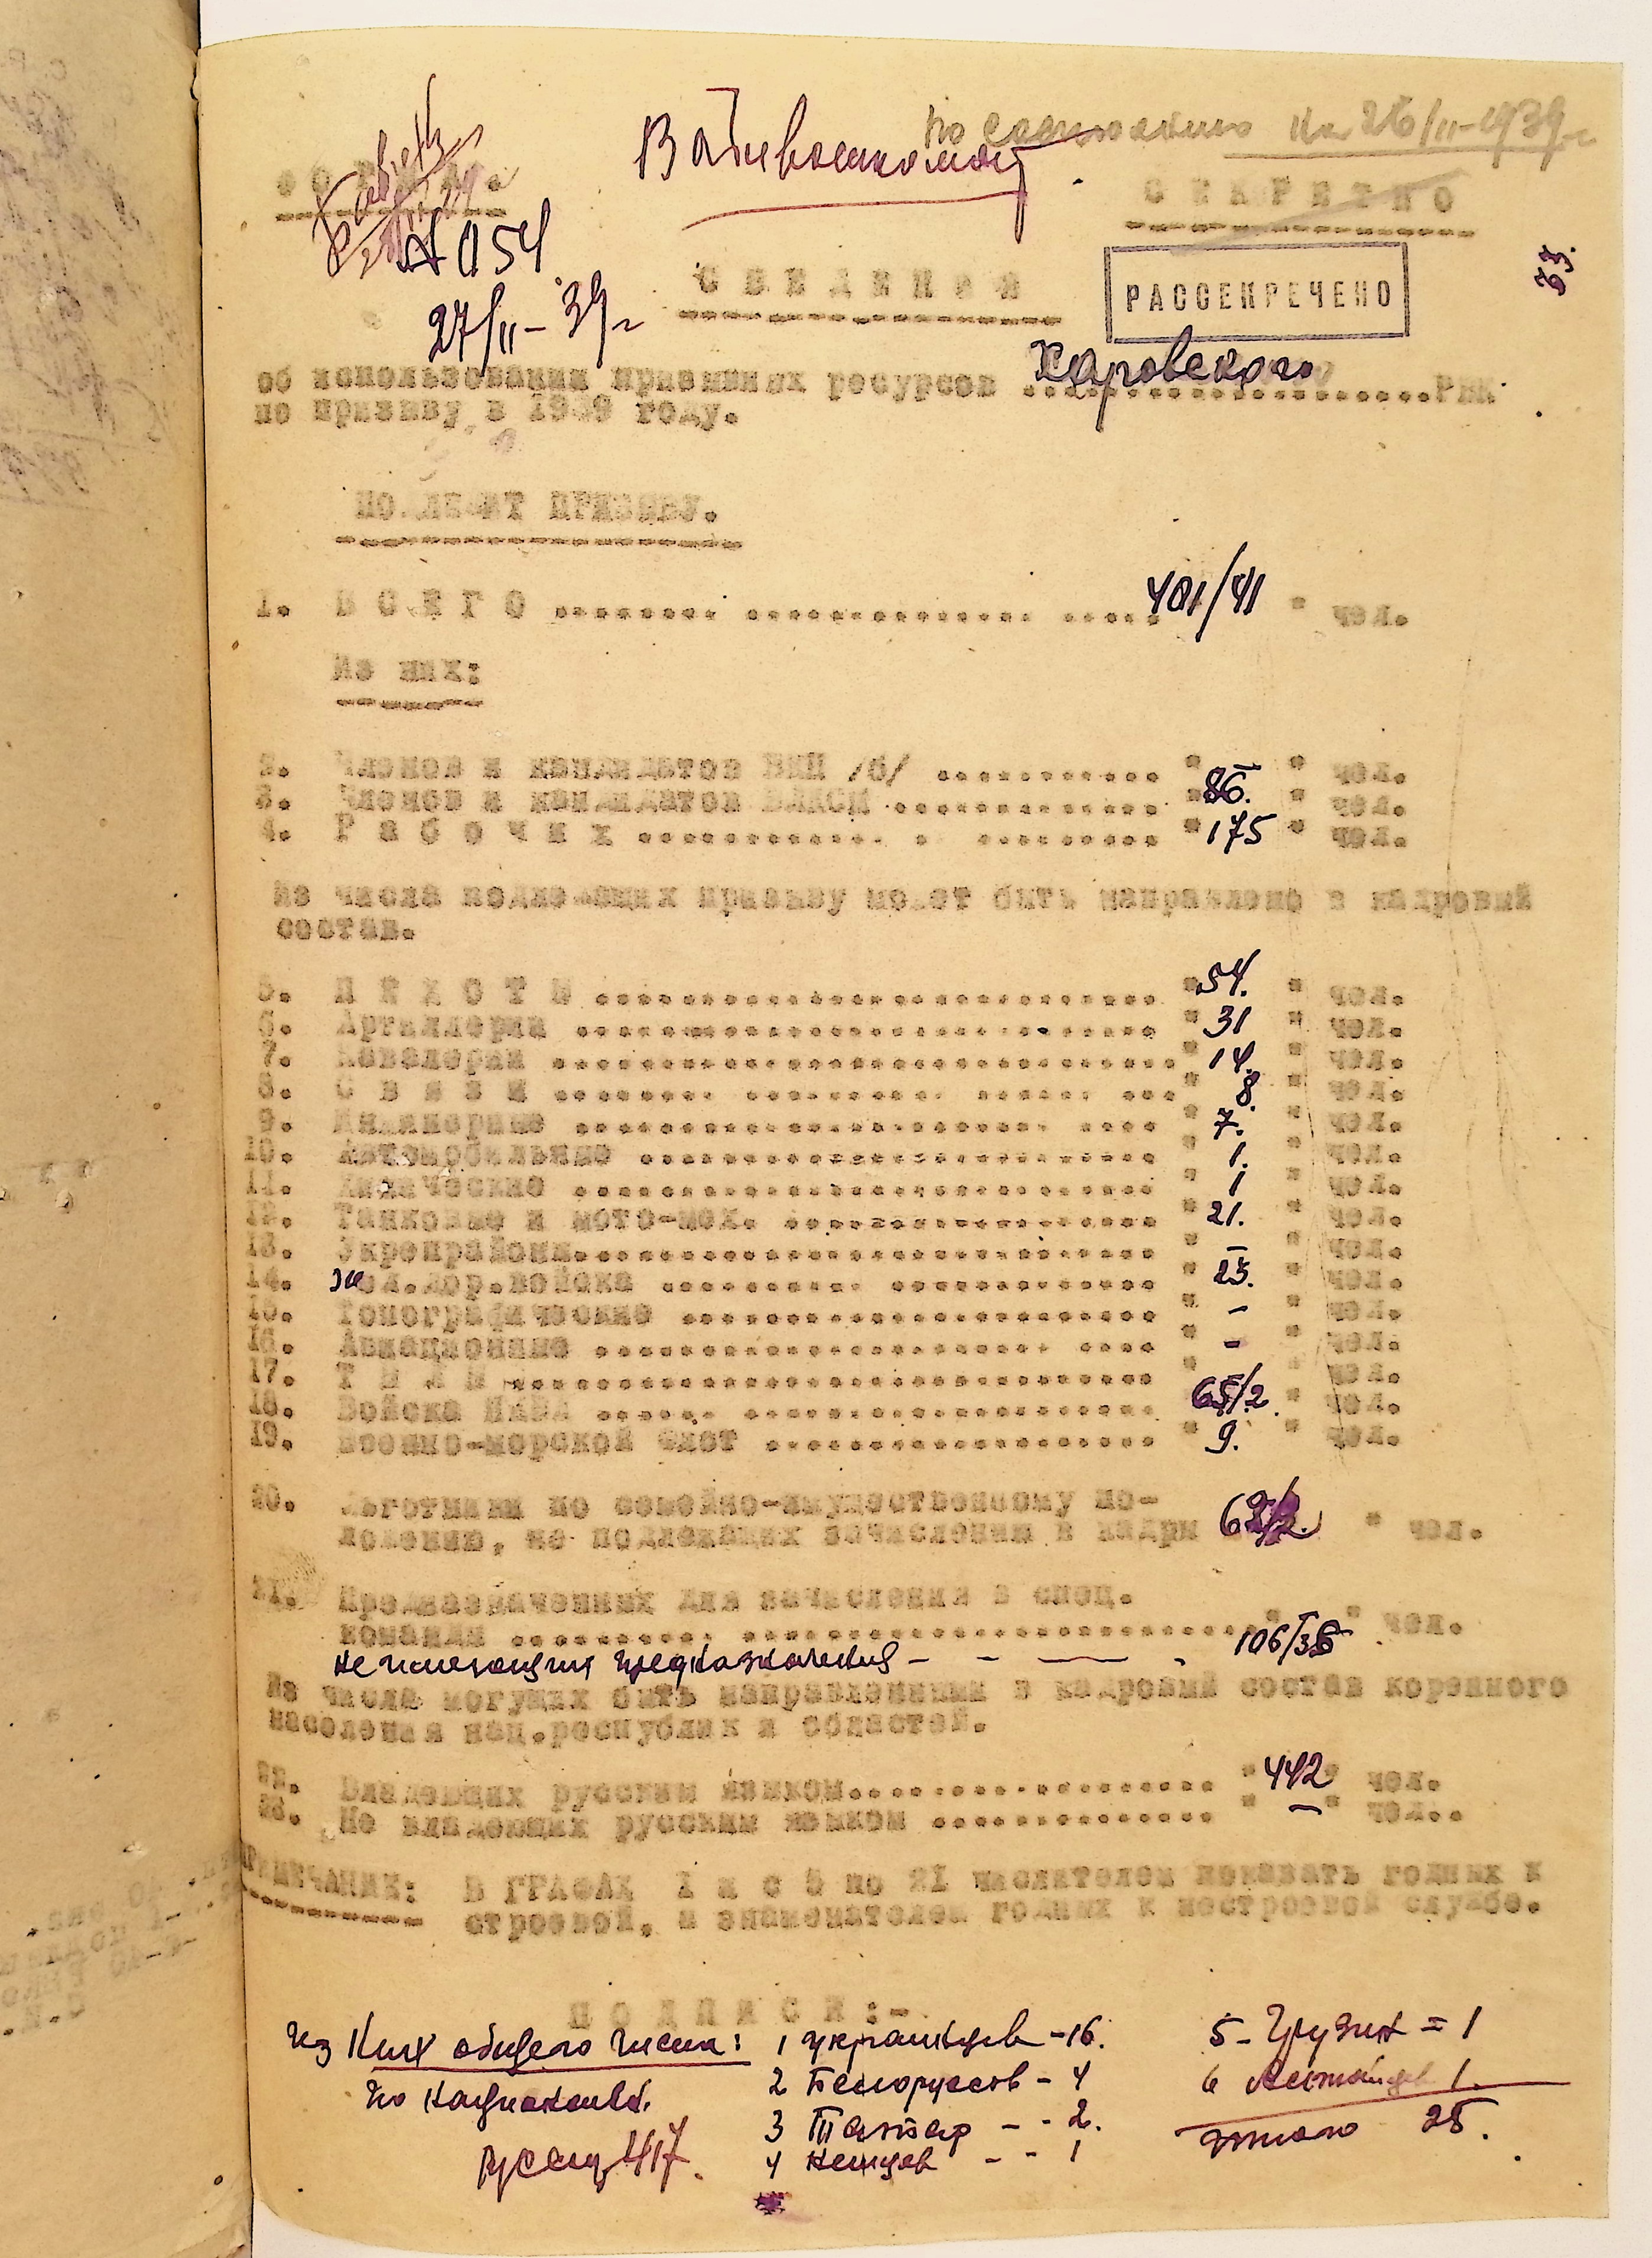 По состоянию на 26/II-1939 г
В Облвоенкомат
ФОРМА.
СЕКРЕТНО
№ 054
27/II-39 г
33.
СВЕДЕНИЯ
РАССЕКРЕЧЕНО
об использовании призывных ресурсов Харовского РВК
по призыву в 1939 году.
ПОДЛЕЖИТ ПРИЗЫВУ.
1. ВСЕГО ........ .............. ..... 401/41 " чел.
Из них:
2. Членов и кандидатов ВКП /б/ ........... " — " чел.
3. Членов и кандидатов ВЛКСМ ............. " 86. " чел.
4. Рабочих ............. . ......... " 175 " чел.
Из числа подлежащих призыву может быть направлено в кадровый
состав.
5. ПЕХОТЫ ............................. " 54. " чел.
6. Артиллерии .............................. " 31 " чел.
7. Кавалерии ................................ " 14. " чел.
8. Связи ........ ......... ...... ... " 8. " чел.
9. Инженерные ......................... .... " 7. " чел.
10. Автомобильные ........................... " 1. " чел.
11. Химические .............................. " 1 " чел.
12. Танковые и мото-мех. ................... " 21. " чел.
13. Укрепрайоны.............................. " — " чел.
14. жел.дор.войска .......... .............. " 23. " чел.
15. Топографические ......................... " - " чел.
16. Авиационные ........................ .... " - " чел.
17. ТЫЛЫ ................................. чел.
18. Войска НКВД ...... ..................... 65/2 " чел.
19. Военно-морской флот .................... " 9. " чел.
20. Льготники по семейно-имущественному по-
ложению, не подлежащих зачислению в кадры " чел.
21. Предназначенных для зачисления в спец.
команды .......... .......................... " " чел.
не имеющих предназначения - - — - 106/36
Из числа могущих быть направленными в кадровый состав коренного
населения нац.республик и областей.
22. Владеющих русским языком................ " 442 " чел.
23. Не владеющих русским языком ............. " — " чел..
ПРИМЕЧАНИЕ: В ГРАФАХ 1 и с 5 по 21 числителем показать годных к
строевой, а знаменателем годных к нестроевой службе.
ПОДПИСИ:-
Из них общего числа:
по национальн.
Русских 417.
1 украинцев - 16.
2 Белоруссов - 4
3 Татар - - 2.
4 Немцев - - 1
5 - Грузин = 1
6 1.
итого 25.